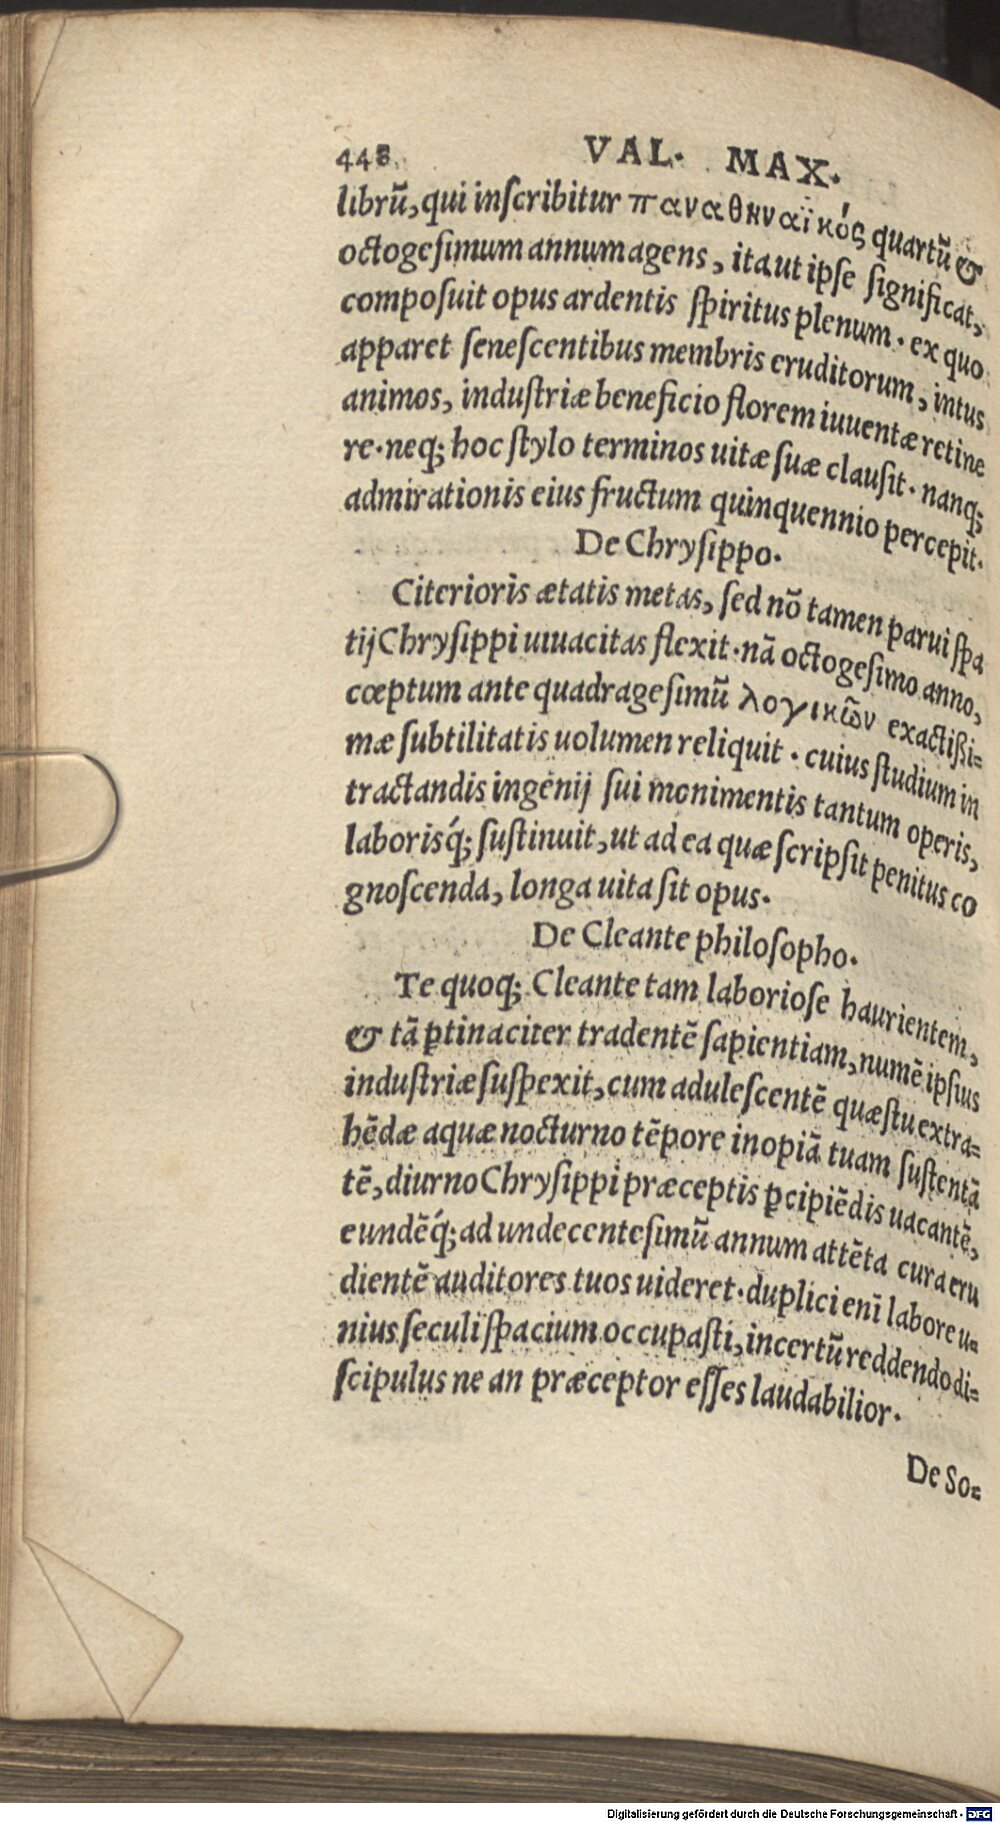 448 VAL. MAX.
librũ, qui inſcribitur παναθηναϊκός quartũ &
octogeſimum annum agens, ita ut ipſe ſignificat,
compoſuit opus ardentis ſpiritus plenum. ex quo
apparet ſeneſcentibus membris eruditorum, intus
animos, induſtriæ beneficio florem iuuentæ retine
re. neq; hoc ſtylo terminos uitæ ſuæ clauſit. nanq;
admirationis eius fructum quinquennio percepit.
De Chryſippo.
Citerioris ætatis metas, ſed nõ tamen parui ſpa
tij Chryſippi uiuacitas flexit. nã octogeſimo anno,
cœptum ante quadrageſimũ λογικῶν exactißi=
mæ ſubtilitatis uolumen reliquit. cuius ſtudium in
tractandis ingenij ſui monimentis tantum operis,
laborisq́; ſuſtinuit, ut ad ea quæ ſcripſit penitus co
gnoſcenda, longa uita ſit opus.
De Cleante philoſopho.
Te quoq; Cleante tam laborioſe haurientem,
& tã ꝑtinaciter tradentẽ ſapientiam, numẽ ipſius
induſtriæ ſuſpexit, cum aduleſcentẽ quæſtu extra=
hẽdæ aquæ nocturno tẽpore inopiã tuam ſuſtentã
tẽ, diurno Chryſippi præceptis ꝑcipiẽdis uacantẽ,
eundẽq́; ad undecenteſimũ annum attẽta cura eru
dientẽ auditores tuos uideret. duplici enĩ labore u=
nius ſeculi ſpacium occupaſti, incertũ reddendo di=
ſcipulus ne an præceptor eſſes laudabilior.
De So=
Digitalisierung gefördert durch die Deutsche Forschungsgemeinschaft - DFG